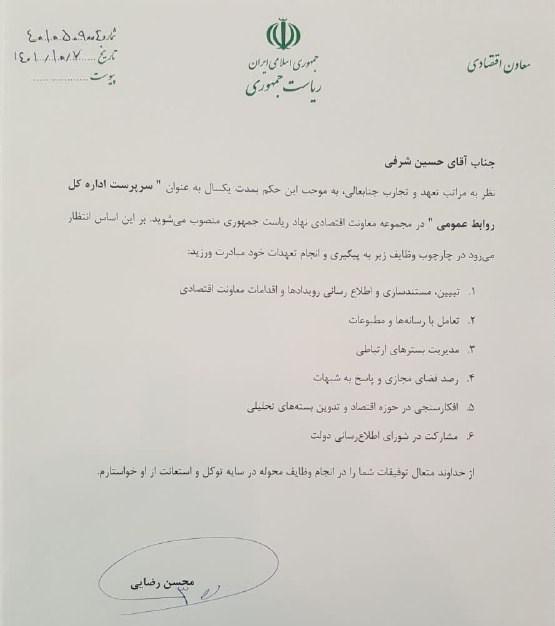 جمهوری اسلامی ایران
ریاست جمهوری
معاون اقتصادی
شماره
تاریخ ۱۴۰۱/۱۰/۷
پیوست
جناب آقای حسین شرفی
نظر به مراتب تعهد و تجارب جنابعالی، به موجب این حکم بمدت یکسال به عنوان " سرپرست اداره کل
روابط عمومی " در مجموعه معاونت اقتصادی نهاد ریاست جمهوری منصوب می‌شوید. بر این اساس انتظار
می‌رود در چارچوب وظایف زیر به پیگیری و انجام تعهدات خود مبادرت ورزید:
۱. تبیین، مستندسازی و اطلاع رسانی رویدادها و اقدامات معاونت اقتصادی
۲. تعامل با رسانه‌ها و مطبوعات
۳. مدیریت بسترهای ارتباطی
۴. رصد فضای مجازی و پاسخ به شبهات
۵. افکارسنجی در حوزه اقتصاد و تدوین بسته‌های تحلیلی
۶. مشارکت در شورای اطلاع‌رسانی دولت
از خداوند متعال توفیقات شما را در انجام وظایف محوله در سایه توکل و استعانت از او خواستارم.
محسن رضایی